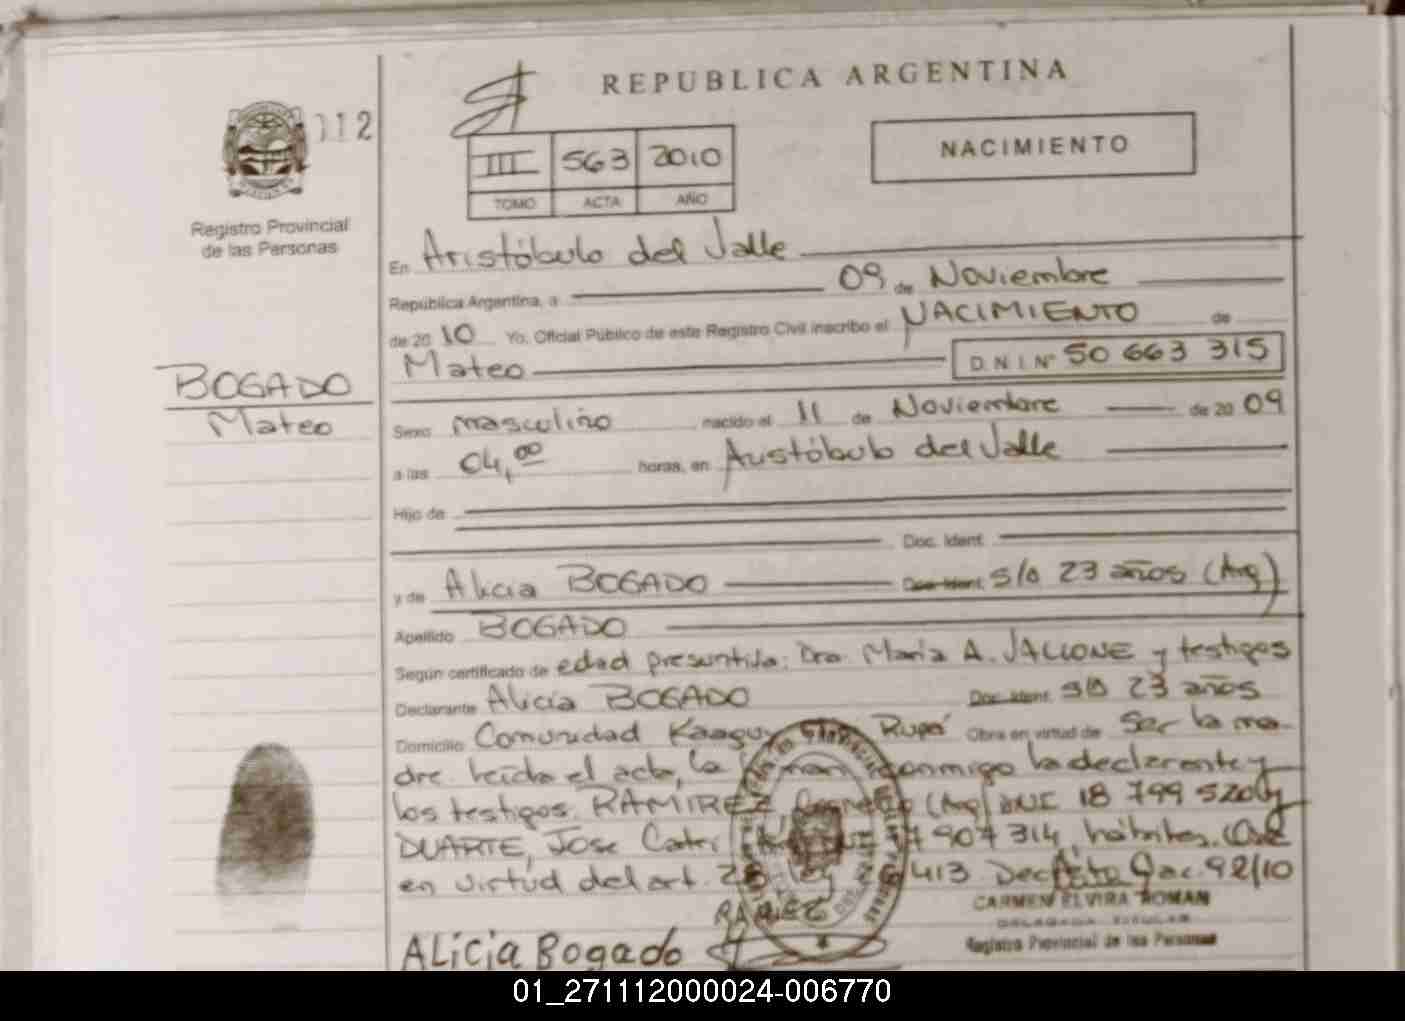 REPUBLICA ARGENTINA
112
III 563 2010
TOMO ACTA AÑO
NACIMIENTO
Registro Provincial
de las Personas
En Aristóbulo del Valle
República Argentina, a 09 de Noviembre
de 2010 Yo, Oficial Público de este Registro Civil inscribo el NACIMIENTO de
Mateo D.N.I Nº 50 663 315
BOGADO
Mateo
Sexo masculino nacido el 11 de Noviembre de 2009
a las 04,00 horas, en Aristóbulo del Valle
Hijo de
Doc. Ident.
y de Alicia BOGADO Doc. Ident. s/d 23 años (Arg)
Apellido BOGADO
Según certificado de edad presuntiva: Dra. María A. y testigos
Declarante Alicia BOGADO Doc. Ident. s/d 23 años
Domicilio Comunidad Obra en virtud de ser la ma-
dre. leída el acta, la conmigo la declarante y
los testigos. RAMIREZ (Arg) DNI 18 799 520 y
DUARTE, Jose 907 314,
en virtud del art. 28 413 Decreto 92/10
CARMEN ELVIRA ROMAN
DELEGADA TITULAR
Registro Provincial de las Personas
RAMIEZ
ALiciA BogAdo
01_271112000024-006770